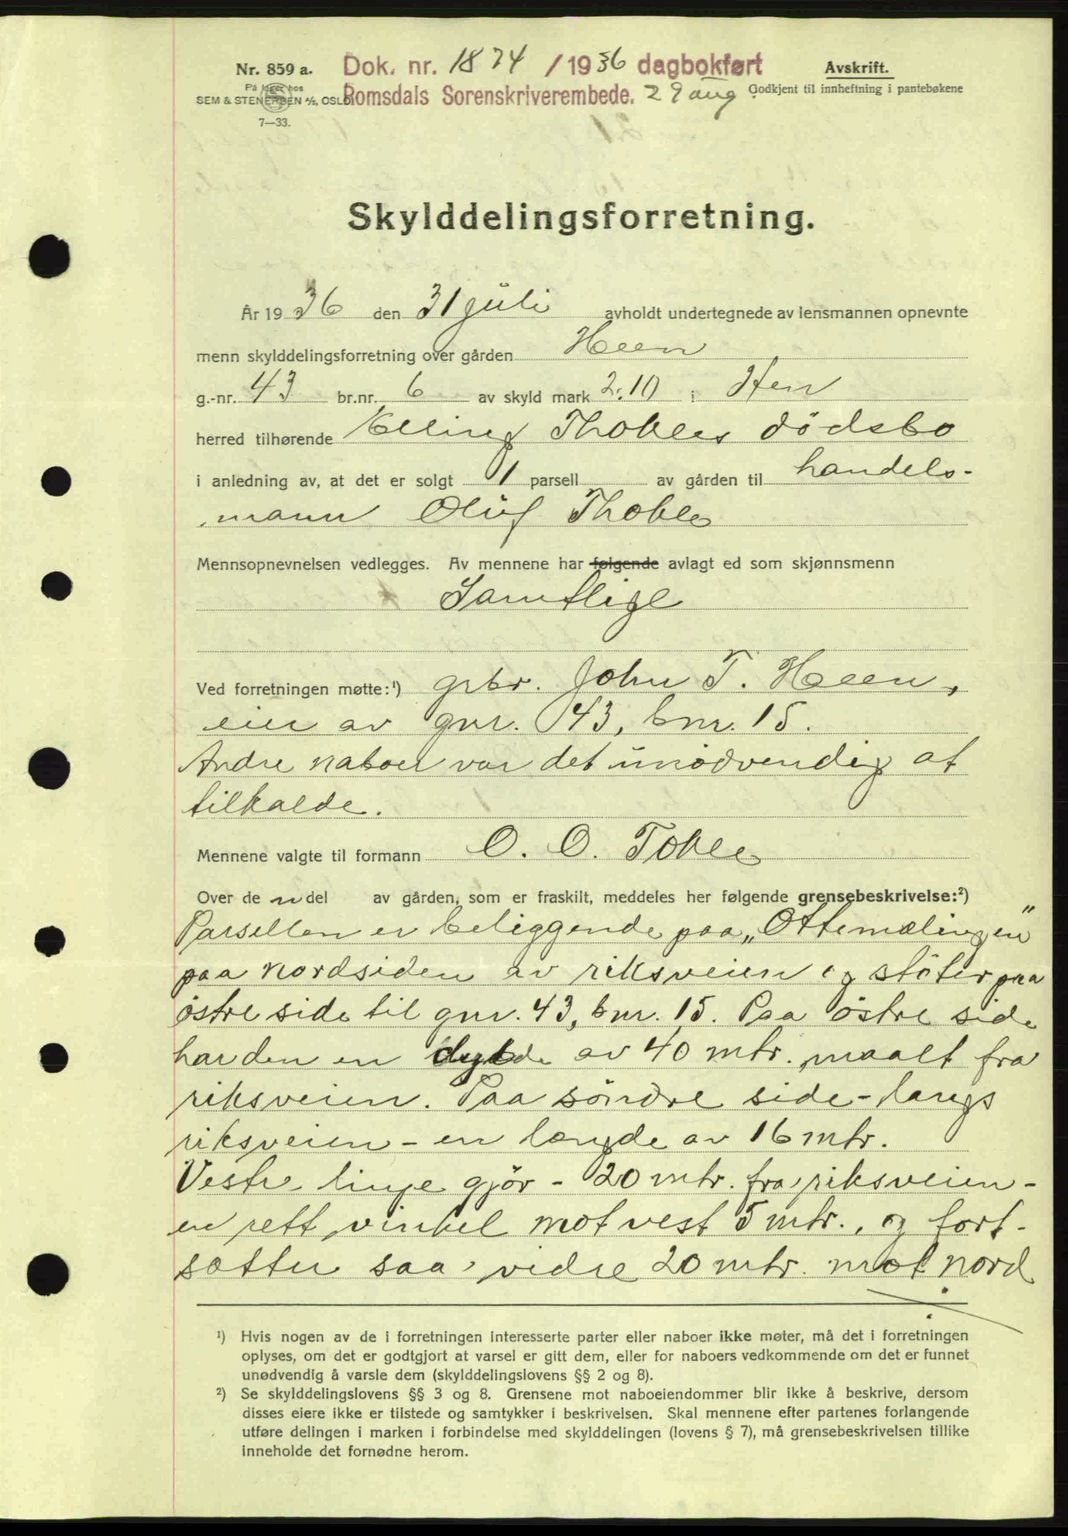 Nr. 859 a. Dok. nr. 1874 / 1936 dagbokført Avskrift.
På lager hos
SEM & STENERSEN A/S, OSLO Romsdals Sorenskriverembede. 29 aug Godkjent til innheftning i pantebøkene
7—33.
Skylddelingsforretning.
År 1936 den 31 juli avholdt undertegnede av lensmannen opnevnte
menn skylddelingsforretning over gården Heen
g.-nr. 43 br.nr. 6 av skyld mark 2.10 i Hen
herred tilhørende Elling Thokles dödsbo
i anledning av, at det er solgt 1 parsell av gården til handels-
mann Oluf Thokle
Mennsopnevnelsen vedlegges. Av mennene har følgende avlagt ed som skjønnsmenn
Samtlige
Ved forretningen møtte:¹) grbr. John T. Heen,
eier av gnr. 43, bnr. 15.
Andre naboer var det unödvendig at
tilkalde.
Mennene valgte til formann O. O. Tokle
Over de n del av gården, som er fraskilt, meddeles her følgende grensebeskrivelse:²)
Parsellen er beliggende paa „Ottemælingen"
paa nordsiden av riksveien og stöter paa
östre side til gnr. 43, bnr. 15. Paa östre side
har den en dybde av 40 mtr. maalt fra
riksveien. Paa söndre side - langs
riksveien - en længde av 16 mtr.
Vestre linje gjör - 20 mtr. fra riksveien -
en rett vinkel mot vest 5 mtr., og fort-
sætter saa vidre 20 mtr. mot nord
¹) Hvis nogen av de i forretningen interesserte parter eller naboer ikke møter, må det i forretningen
oplyses, om det er godtgjort at varsel er gitt dem, eller for naboers vedkommende om det er funnet
unødvendig å varsle dem (skylddelingslovens §§ 2 og 8).
²) Se skylddelingslovens §§ 3 og 8. Grensene mot naboeiendommer blir ikke å beskrive, dersom
disses eiere ikke er tilstede og samtykker i beskrivelsen. Skal mennene efter partenes forlangende
utføre delingen i marken i forbindelse med skylddelingen (lovens § 7), må grensebeskrivelsen tillike
inneholde det fornødne herom.